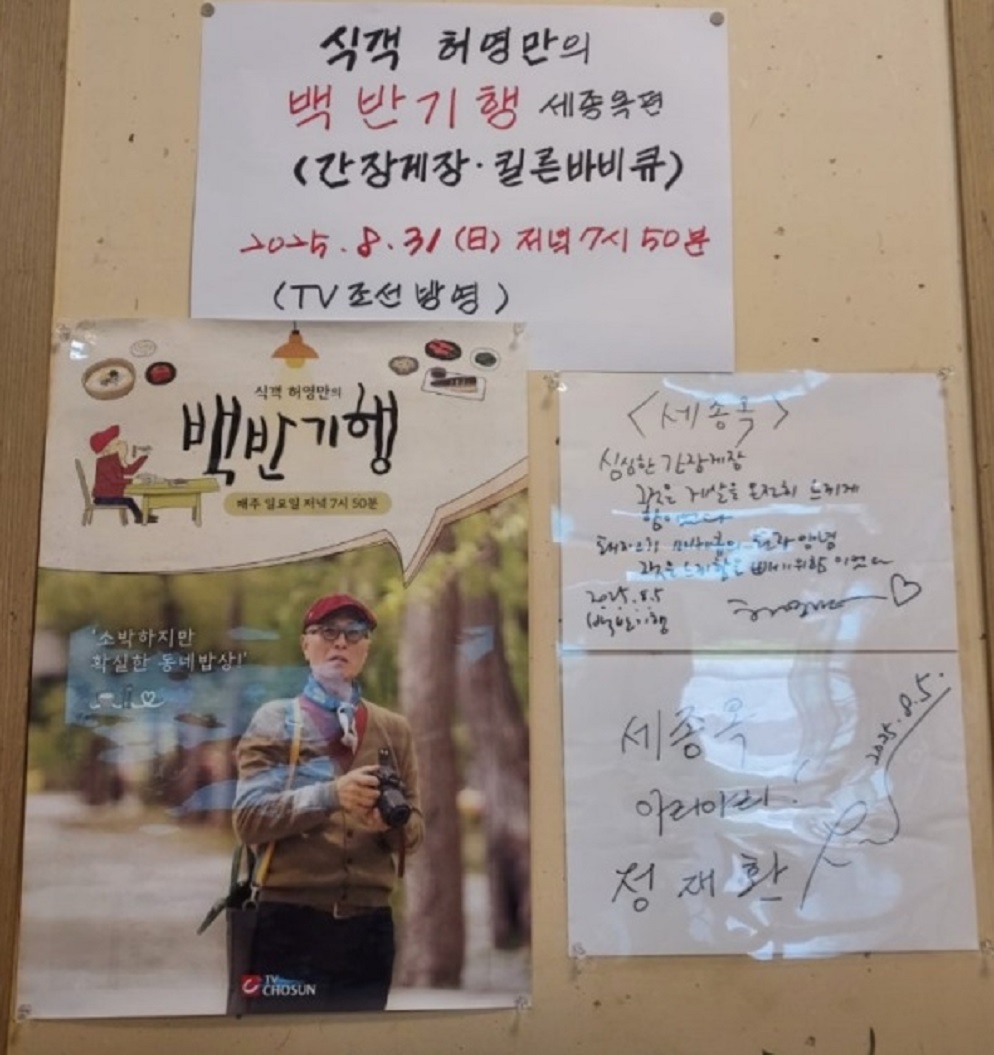 식객 허영만의
백반기행 세종옥편
(간장게장·킬른바비큐)
2025.8.31(日) 저녁 7시 50분
(TV조선 방영)
식객 허영만의
백반기행
매주 일요일 저녁 7시 50분
'소박하지만
확실한 동네밥상!'
TV
CHOSUN
<세종옥>
심심한 간장게장
게살을 온전히 느끼게
2025.8.5
백반기행
세종옥
아리아리!
정재환
2025.8.5.